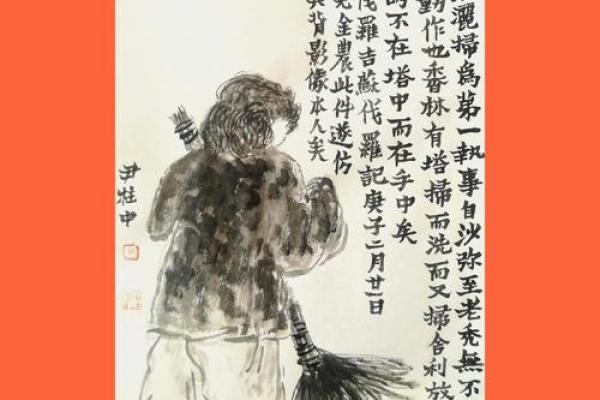 灑掃爲第一執事自沙弥至老禿無不
勤作也香林有塔掃而洗而又掃舍利放
明不在塔中而在手中矣
伐羅吉蘇伐羅記庚子二月廿一日
金農此件遂仿
其背影像本人矣
尹柱中